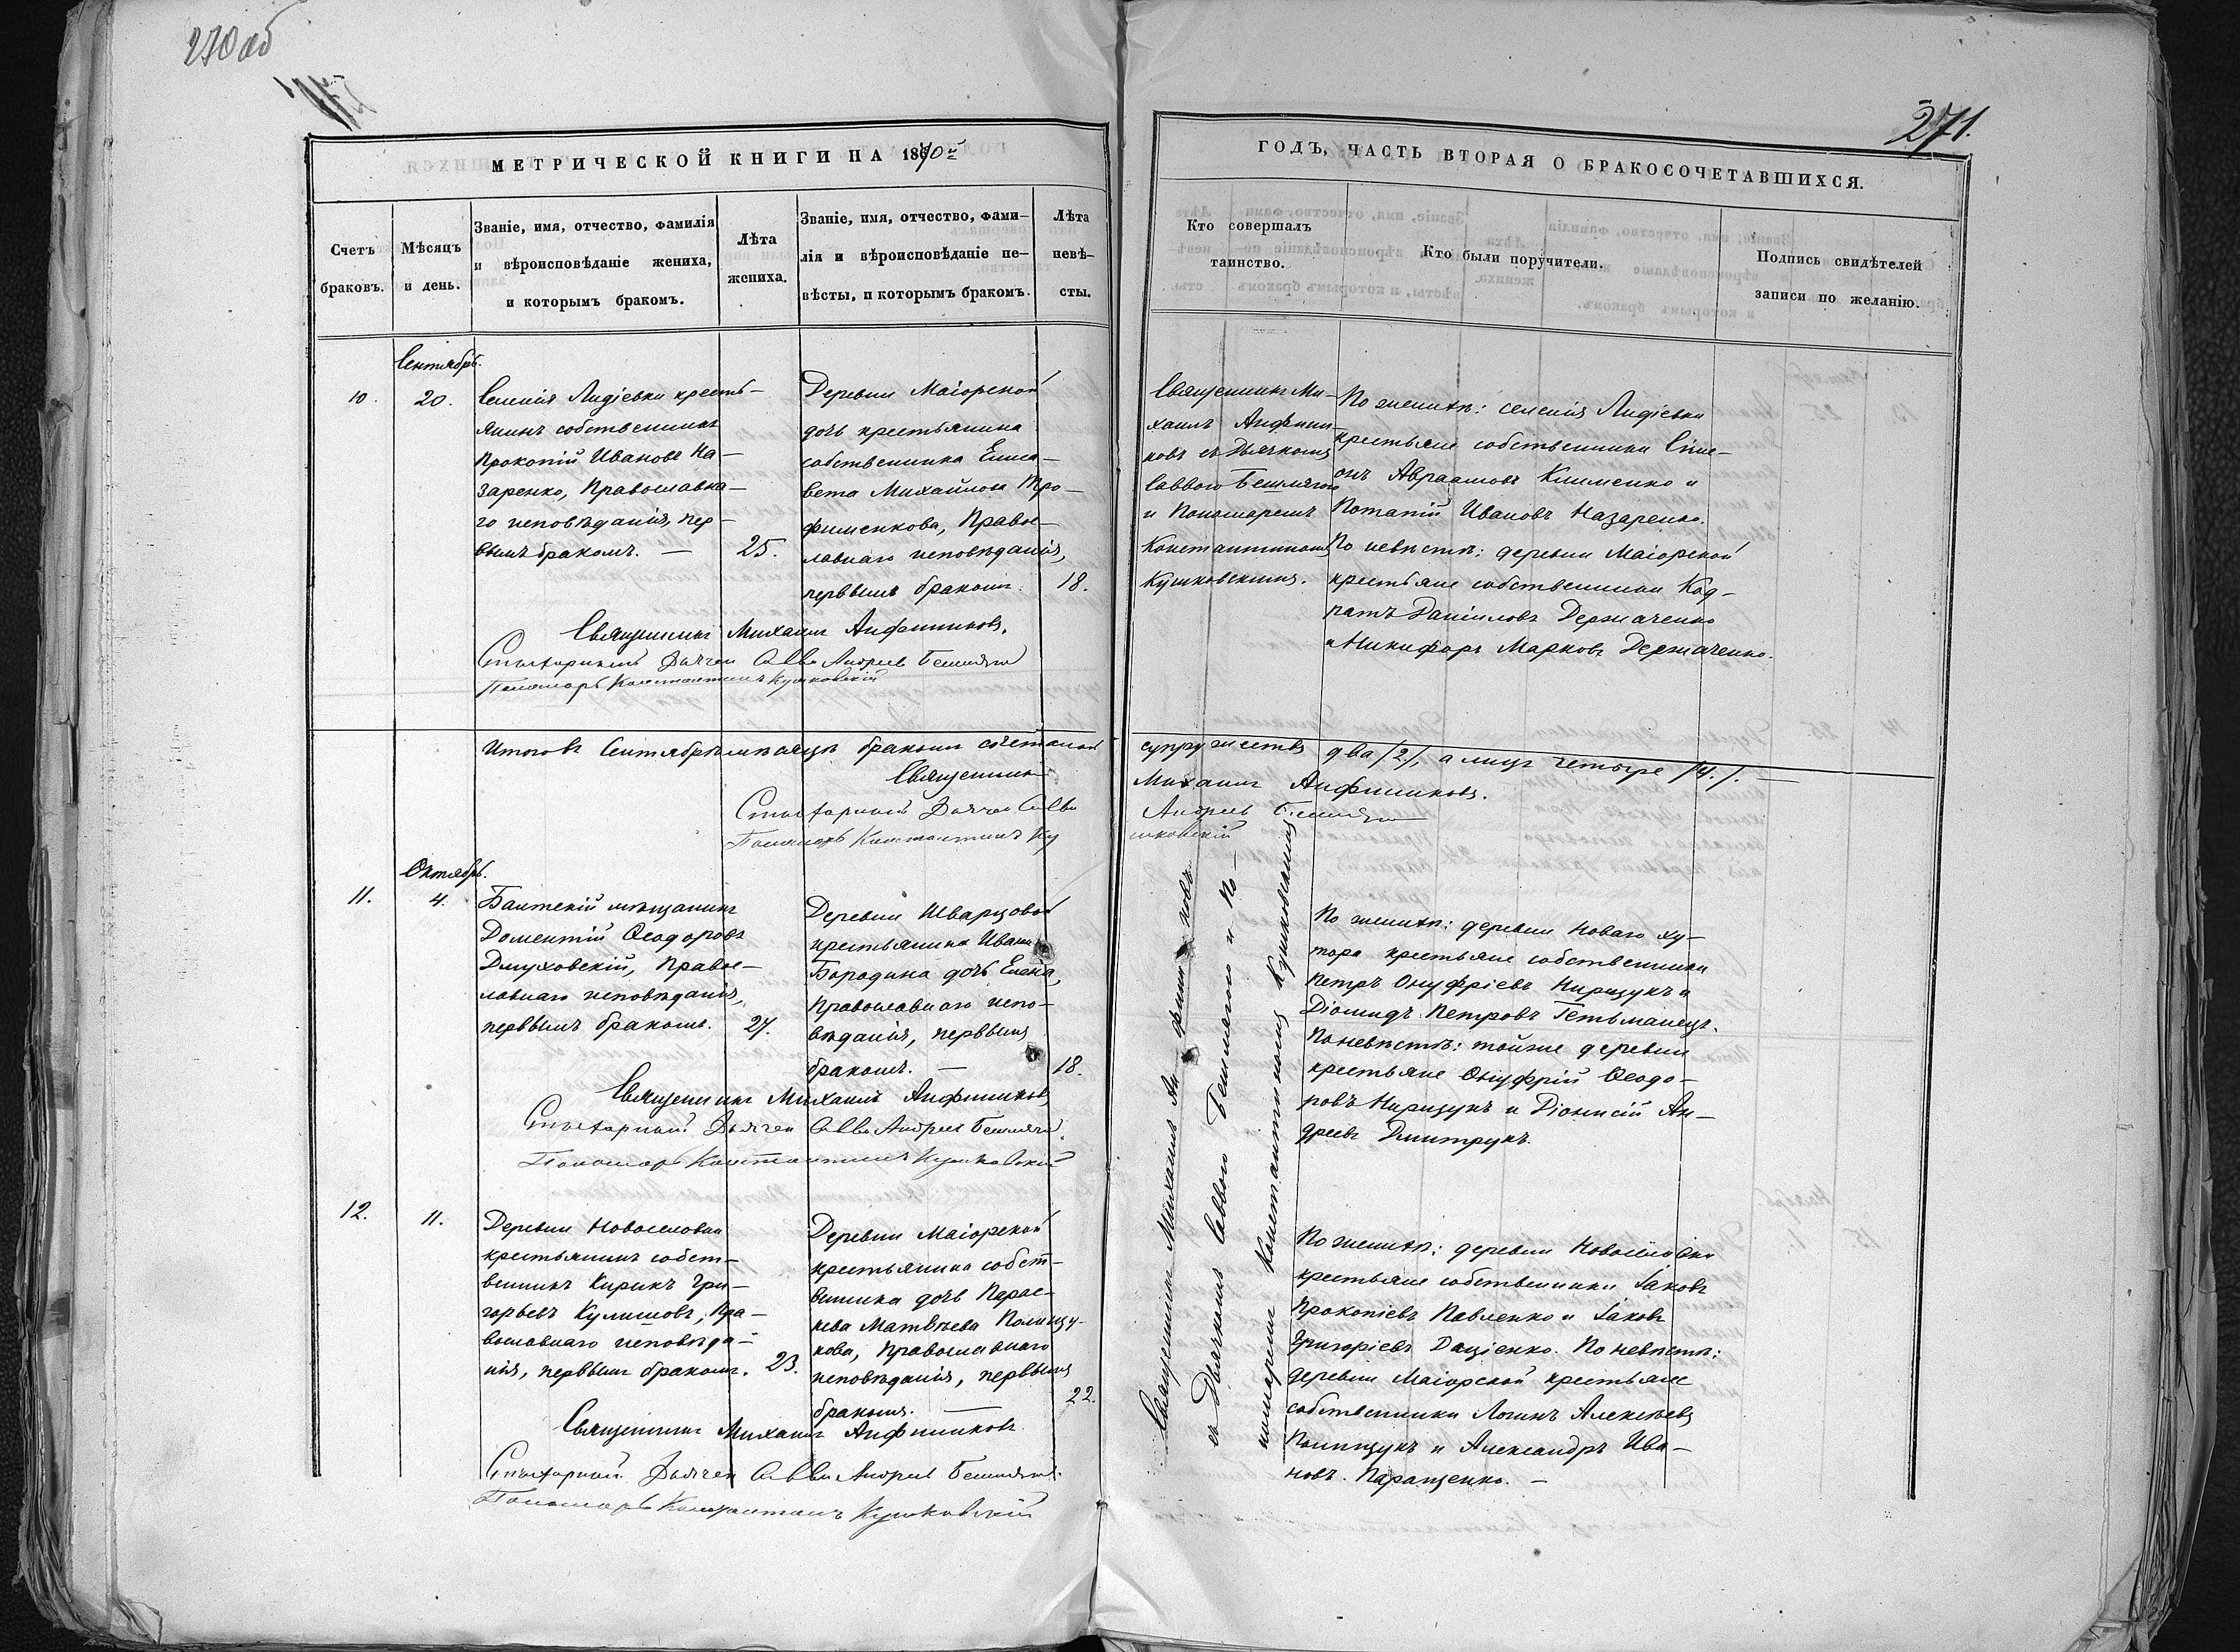 270 об
271.
МЕТРИЧЕСКОЙ КНИГИ НА 1870й
ГОДЪ, ЧАСТЬ ВТОРАЯ О БРАКОСОЧЕТАВШИХСЯ.
Счетъ
браковъ.
Мѣсяцъ
и день.
Званіе, имя, отчество, фамилія
и вѣроисповѣданіе жениха,
и которымъ бракомъ.
Лѣта
жениха.
Званіе, имя, отчество, фами-
лія и вѣроисповѣданіе не-
вѣсты, и которымъ бракомъ.
Лѣта
невѣ-
сты.
Кто совершалъ
таинство.
Кто были поручители.
Подпись свидѣтелей
записи по желанію.
Сентябрь.
10.
20.
Селенія Лидіевки кресть-
янинъ собственникъ
Прокопій Ивановъ На-
заренко, Православна-
го исповѣданія, пер-
вымъ бракомъ. —
25.
Деревни Маіорской
дочь крестьянина
собственника Елиса-
вета Михайлова Тро-
фименкова, Правос-
лавнаго исповѣданія,
первымъ бракомъ.
18.
Священникъ Ми-
хаилъ Анфини-
ковъ съ Дьячкомъ
Саввою Бешлягою
и Пономаремъ
Константиномъ
Кушковскимъ.
По женихѣ: селенія Лидіевки
крестьяне собственники Симе-
онъ Авраамовъ Клименко и
Потапій Ивановъ Назаренко.
По невѣстѣ: деревни Маіорской
крестьяне собственники Код-
ратъ Даніиловъ Держаченко
и Никифоръ Марковъ Держаченко.
Священникъ Михаилъ Анфиниковъ.
Дьячекъ Савва Андреевъ Бешляга
Пономарь Константинъ Кушковскій
Итого въ Сентябрѣ мѣсяцѣ бракомъ сочетаной
супружествъ два /2/, а лицъ четыре /4./. —
Священникъ
Михаилъ Анфиниковъ.
Дьячекъ Савва
Андреевъ Бешляга
Пономарь Константинъ Ку
шковскій
Октябрь.
11.
4.
Балтскій мѣщанинъ
Доментій Ѳеодоровъ
Глуховскій, Правос-
лавнаго исповѣданія,
первымъ бракомъ.
27.
Деревни Шварцовой
крестьянина Ивана
Бородина дочь Елена,
Православнаго испо-
вѣданія, первымъ
бракомъ. —
18.
Священникъ Михаилъ Ан финиковъ
съ Дьячкомъ Саввою Бешлягою и По-
номаремъ Константиномъ Кушковскимъ
По женихѣ: деревни Новаго ху-
тора крестьяне собственники
Петръ Онуфріевъ Нирицукъ и
Діомидъ Петровъ Гетьманецъ.
По невѣстѣ: тойже деревни
крестьяне Онуфрій Ѳеодо-
ровъ Нирицукъ и Діонисій Ан-
дреевъ Дмитрукъ.
Священникъ Михаилъ Анфиниковъ
Дьячекъ Савва Андреевъ Бешляга.
Пономарь Константинъ Кушковскій
12.
11.
Деревни Новоселовки
крестьянинъ собст-
венникъ Кирикъ Гри-
горьевъ Кулишовъ, Пра-
вославнаго исповѣда-
нія, первымъ бракомъ.
23.
Деревни Маіорской
крестьянина собст-
венника дочь Парас-
кева Матвѣева Полищу-
кова, Православнаго
исповѣданія, первымъ
бракомъ. —
22.
По женихѣ: деревни Новоселовки
крестьяне собственники Іаковъ
Прокопіевъ Павленко и Іаковъ
Григоріевъ Даціенко. По невѣстѣ:
деревни Маіорской крестьяне
собственники Логинъ Алексѣевъ
Полищукъ и Александръ Ива-
новъ Паращенко. —
Священникъ Михаилъ Анфиниковъ
Дьячекъ Савва Андреевъ Бешляга.
Пономарь Константинъ Кушковскій